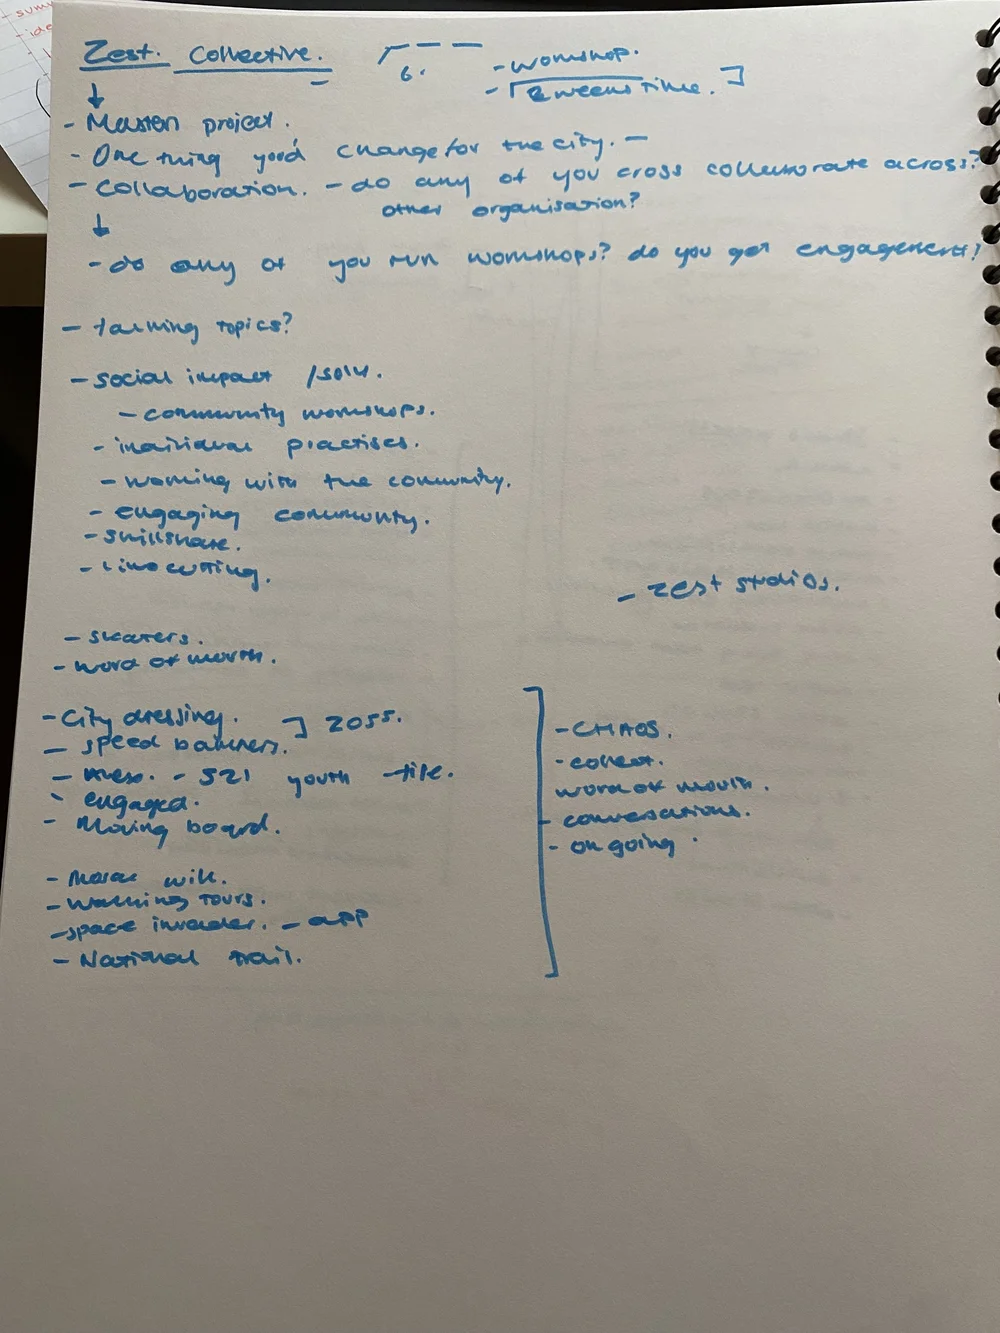 Zest. Collective.
6.
- workshop.
- 2 weeks time.
- Masters project.
- One thing you'd change for the city. -
- Collaboration. - do any of you cross collaborate across?
other organisation?
- do any of you run workshops? do you get engagement?
- talking topics?
- social impact /
- community workshops.
- individual practises.
- working with the community.
- engaging community.
- skillshare.
- Lino cutting.
- zest studios.
- skaters.
- word of mouth.
- City dressing. ] 2055.
- speed banners.
- - 521 youth -
- engaged.
- Moving board.
- CHAOS.
- collect.
word of mouth.
- conversations.
- on going.
- will.
- walking tours.
- space invader. - app
- National trail.